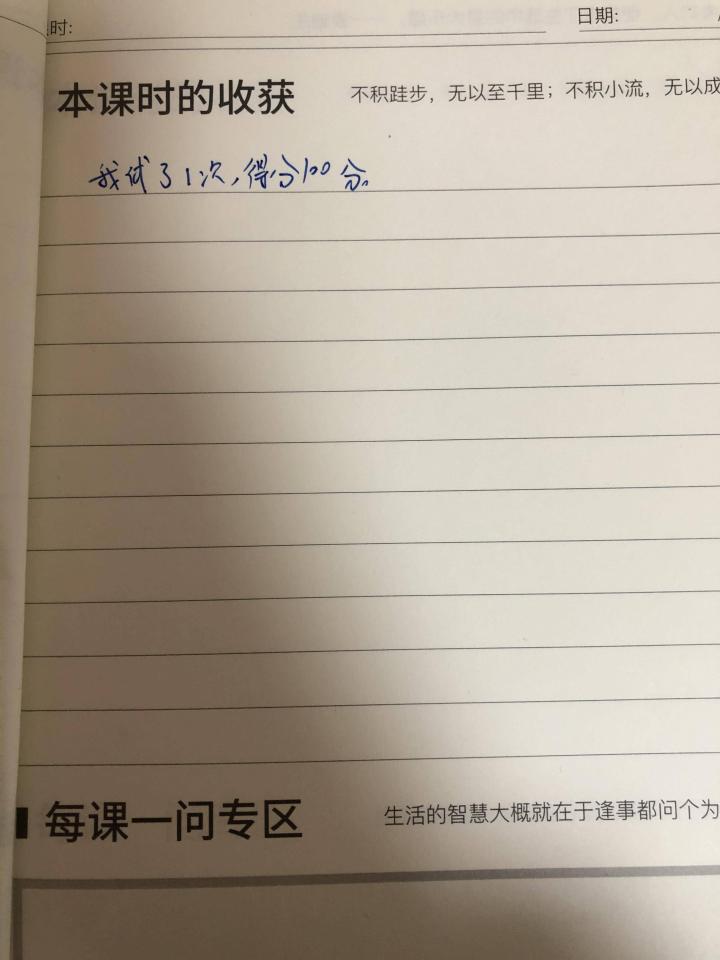 时:
日期:
本课时的收获
不积跬步，无以至千里；不积小流，无以成
我试了1次,得分100分。
每课一问专区
生活的智慧大概就在于逢事都问个为